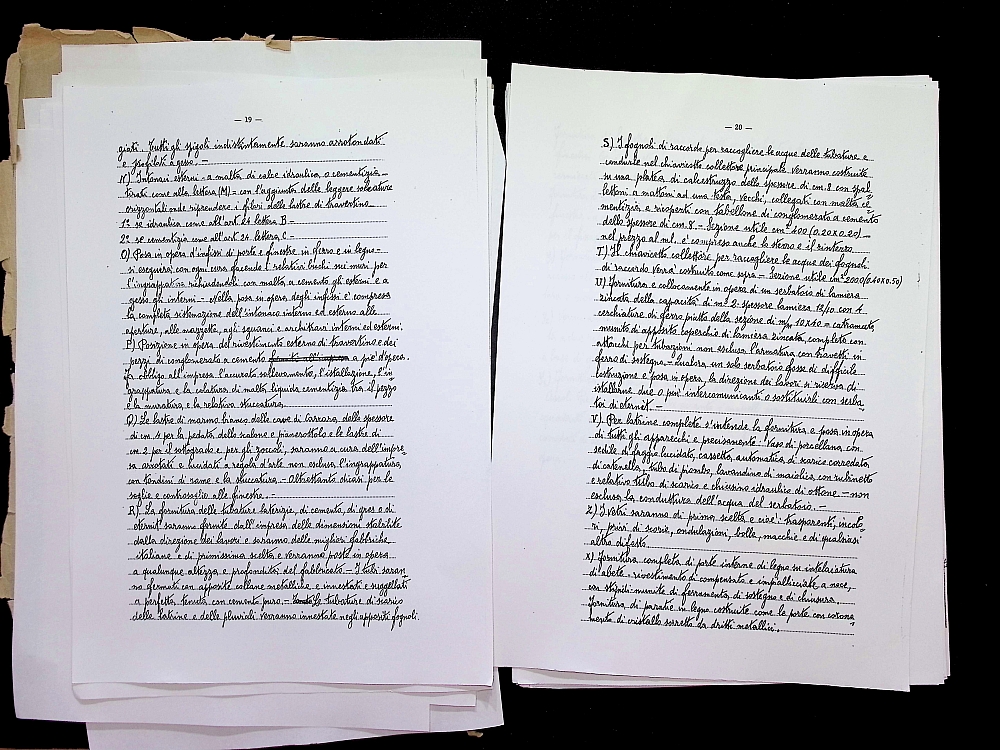 — 19 —
giati. Tutti gli spigoli indistintamente saranno arrotondati
e profilati a gesso. —
N) Intonaci esterni - a malta di calce idraulica a cementizia -
tirati come alla lettera (M) = con l'aggiunta delle leggere solcature
orizzontali onde riprendere i filari delle lastre di travertino
1º se idraulica come all'art. 24 lettera B
2º se cementizia come all'art. 24 lettera C
O) Posa in opera d'infissi di porte e finestre in ferro e in legno -
si eseguirà con ogni cura facendo i relativi buchi sui muri per
l'ingrappatura richiudendoli con malta a cemento gli esterni e a
gesso gli interni. - Nella posa in opera degli infissi è compresa
la completa sistemazione dell'intonaco interno ed esterno alle
aperture, alle mazzette, agli sguanci e architravi interni ed esterni.
P) Posizione in opera del rivestimento esterno di travertino e dei
pezzi di conglomerato a cemento a piè d'opera.
Fa obbligo all'impresa l'accurato sollevamento, l'istallazione, l'in
grappatura e la colatura di malta liquida cementizia tra il pezzo
e la muratura e la relativa stuccatura.
Q) Le lastre di marmo bianco delle cave di Carrara, dello spessore
di cm. 4 per la pedata, dello scalone e pianerottolo e le lastre di
cm. 2 per il sottogrado e per gli zoccoli, saranno a cura dell'impre-
sa arrotati e lucidati a regola d'arte non esclusa l'ingrappatura
con tondini di rame e la stuccatura. - Altrettanto dicasi per le
soglie e controsoglie alle finestre. -
R) La fornitura delle tubature laterizie, di cemento, di gres o di
eternit saranno fornite dall'impresa delle dimensioni stabilite
dalla direzione dei lavori e saranno delle migliori fabbriche
italiane e di primissima scelta e verranno poste in opera
a qualunque altezza e profondità del fabbricato. - I tubi saran
no fermati con apposite collane metalliche e innestati e suggellati
a perfetta tenuta con cemento puro. - Le tubature di scarico
delle latrine e delle pluviali verranno innestate negli appositi fognoli.
— 20 —
S) I fognoli di raccordo per raccogliere le acque delle tubature e
condurle nel chiavicotto collettore principale verranno costruite
su una platea di calcestruzzo dello spessore di cm. 8 con spal
lettoni a mattoni ad una testa, vecchi, collegati con malta ce
mentizia e ricoperti con tabellone di conglomerato a cemento
dello spessore di cm. 8 - Sezione utile cm² 400 (0,20x0,20) -
nel prezzo al ml. è compreso anche lo sterro e il rinterro.
T) Il chiavicotto collettore per raccogliere le acque dei fognoli
di raccordo verrà costruito come sopra - Sezione utile cm² 2000 (0.40x0.50)
U) Fornitura e collocamento in opera di un serbatoio di lamiera
zincata della capacità di m³ 2 - spessore lamiera 12/10 con 4
cerchiature di ferro piatto della sezione di m/m 10x40 incatramato,
munito di apposito coperchio di lamiera zincata, completo con
attacchi per tubazioni non esclusa l'armatura con travetti in
ferro di sostegno. - Qualora un solo serbatoio fosse di difficile
costruzione e posa in opera, la direzione dei lavori si riserva di
istallarne due o più intercomunicanti o sostituirli con serba
toi di eternit. -
V) Per latrine complete s'intende la fornitura e posa in opera
di tutti gli apparecchi e precisamente - vaso di porcellana con
sedile di faggio lucidato, cassetta automatica di scarico corredata
di catenella, tubo di piombo, lavandino di maiolica, con rubinetto
e relativo tubo di scarico e chiusino idraulico di ottone. - non
esclusa la conduttura dell'acqua del serbatoio. -
Z) I vetri saranno di prima scelta e cioè: trasparenti, incolo
ri, privi di scorie, ondulazioni, bolle, macchie e di qualsiasi
altro difetto.
X) Fornitura completa di porte interne di legno su intelaiatura
di abete, rivestimento di compensato e impiallicciate a noce,
con stipidi munite di ferramenta, di sostegno e di chiusura.
Fornitura di parate in legno costruite come le porte con corona
mento di cristallo sorretto da dritti metallici.